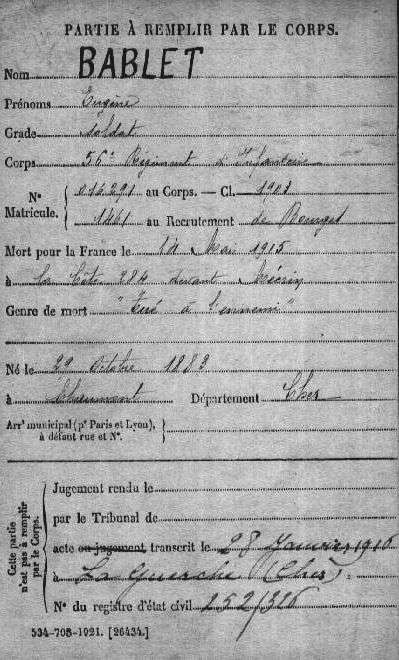 PARTIE À REMPLIR PAR LE CORPS.
Nom BABLET
Prénoms Eugène
Grade soldat
Corps 56e Régiment d'Infanterie
N° Matricule. 016291 au Corps. — Cl. 1903
1461 au Recrutement de Bourges
Mort pour la France le 14 Mai 1915
à la Côte 284 devant
Genre de mort "Tué à l'ennemi"
Né le 29 Octobre 1883
à Chaumont Département Cher
Arrt municipal (pr Paris et Lyon), à défaut rue et N°.
Cette partie n'est pas à remplir par le Corps.
Jugement rendu le
par le Tribunal de
acte ou jugement transcrit le 28 Janvier 1916
à La Guerche (Cher)
N° du registre d'état civil 252/326
534-708-1921. [26434.]